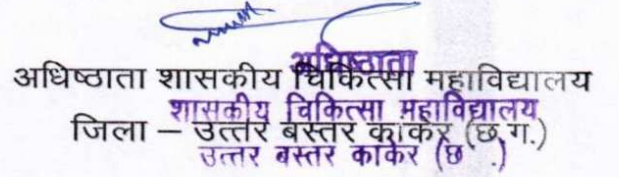 अधिष्ठाता
अधिष्ठाता शासकीय चिकित्सा महाविद्यालय
शासकीय चिकित्सा महाविद्यालय
जिला – उत्तर बस्तर कांकेर (छ.ग.)
उत्तर बस्तर कांकेर (छ .)